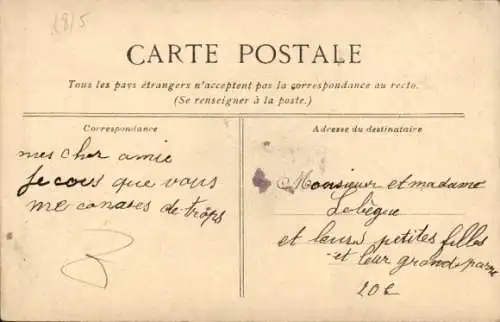 18/5
CARTE POSTALE
Tous les pays étrangers n'acceptent pas la correspondance au recto.
(Se renseigner à la poste.)
Correspondance
mes cher amie
je cois que vous
me de trops
Adresse du destinataire
Monsieur et madame
Lebègue
et leurs petites filles
et leur grand
20c